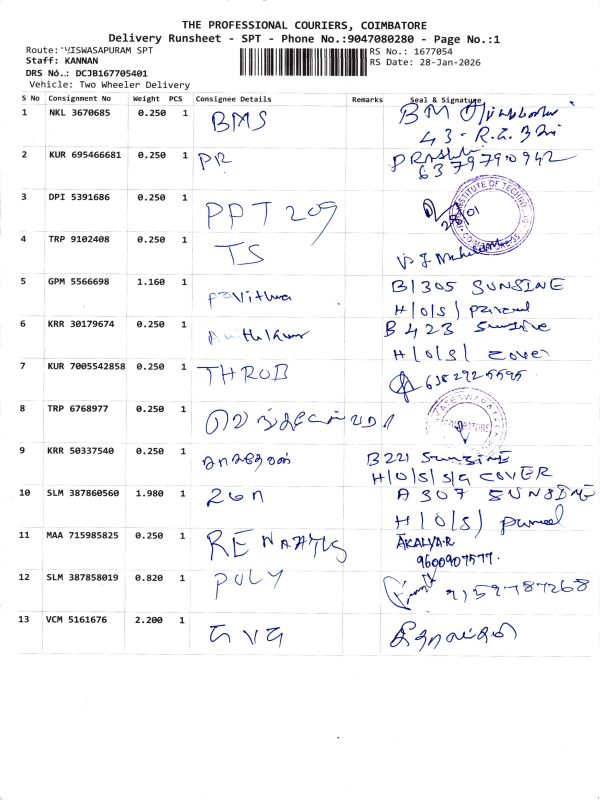 THE PROFESSIONAL COURIERS, COIMBATORE
Delivery Runsheet - SPT - Phone No.:9047080280 - Page No.:1
Route: VISWASAPURAM SPT
RS No.: 1677054
Staff: KANNAN
RS Date: 28-Jan-2026
DRS No.: DCJB167705401
Vehicle: Two Wheeler Delivery
S No Consignment No Weight PCS Consignee Details Remarks Seal & Signature
1 NKL 3670685 0.250 1 BMS BM
43-
2 KUR 695466681 0.250 1 PR
6379790942
3 DPI 5391686 0.250 1 PPT 209 28/01
INSTITUTE OF TECHNOLOGY
4 TRP 9102408 0.250 1 TS
5 GPM 5566698 1.160 1 Pavithra B1305 SUNSINE
H/O/S/ Parcel
6 KRR 30179674 0.250 1 B 423 Sunsine
H/O/S/ cover
7 KUR 7005542858 0.250 1 THROB 6382925595
8 TRP 6768977 0.250 1
COIMBATORE
9 KRR 50337540 0.250 1 B 221 SUNSINE
H/O/S/S/G COVER
10 SLM 387860560 1.980 1 A 307 SUNSINE
H/O/S/ parcel
11 MAA 715985825 0.250 1 AKALYA.R
9600907577.
12 SLM 387858019 0.820 1 POLY
13 VCM 5161676 2.200 1 GVG